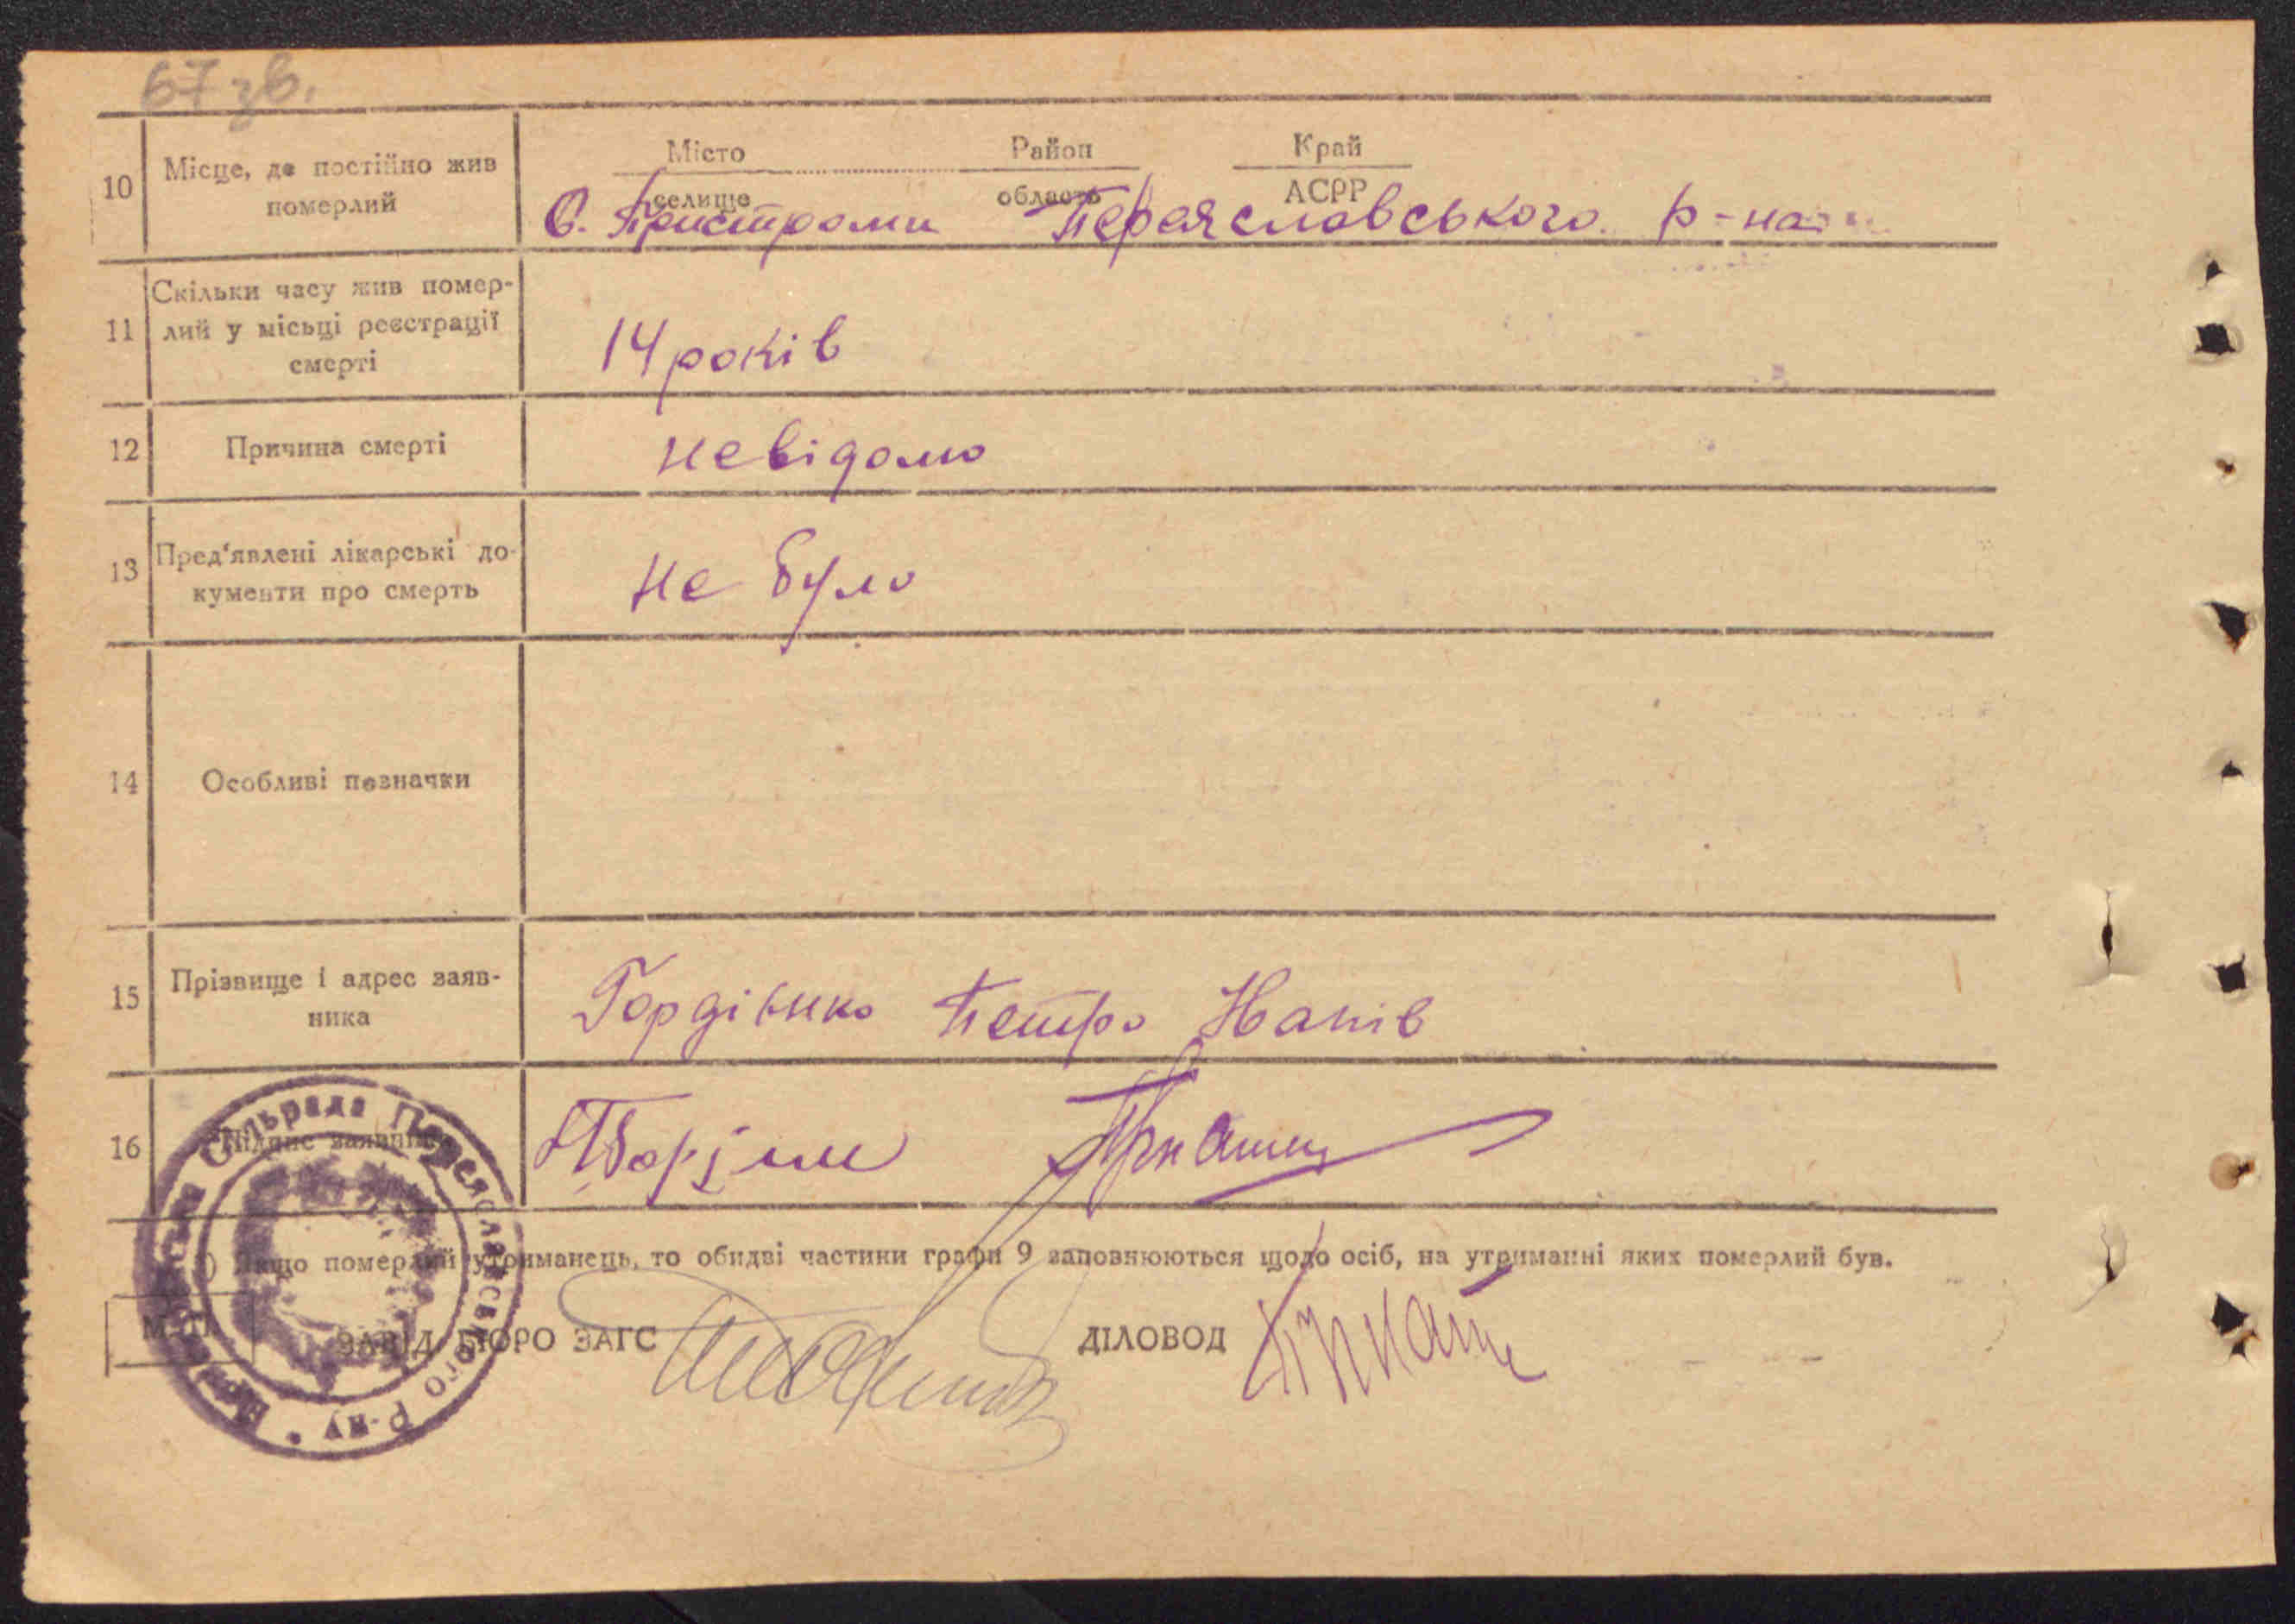 67 зв.
Місто Район Край
10 Місце, де постійно жив
померлий
селище область АСРР
С. Пристроми Переяславського р-на
11 Скільки часу жив помер-
лий у місьці реєстрації
смерті
14 років
12 Причина смерті невідомо
13 Пред'явлені лікарські до-
кументи про смерть
не було
14 Особливі позначки
15 Прізвище і адрес заяв-
ника
Гордієнко Петро
16 Підпис заявника
Сільрада Переяславського Р-ну
) Якщо померлий утриманець, то обидві частини графи 9 заповнюються щодо осіб, на утриманні яких померлий був.
М. П.
ЗАВІД. БЮРО ЗАГС ДІЛОВОД